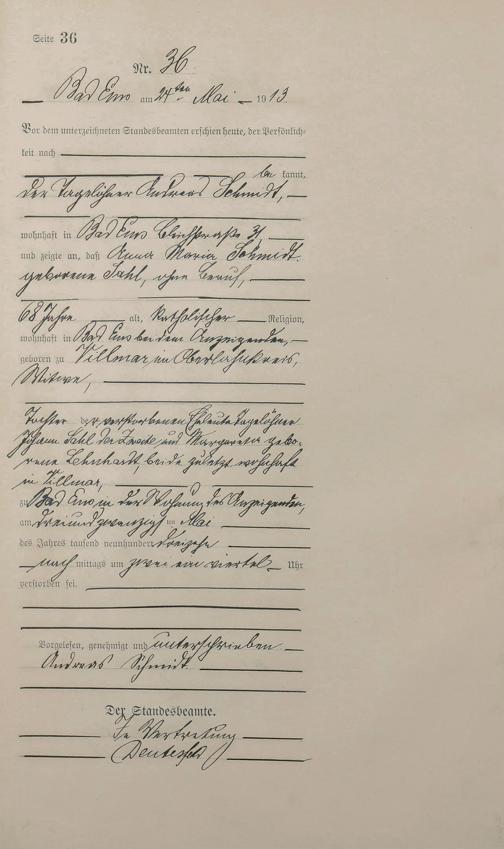 Seite 36
Nr. 36
Bad Ems am 24ten Mai 1913.
Vor dem unterzeichneten Standesbeamten erschien heute, der Persönlich-
keit nach
be kannt,
der Tagelöhner Andreas Schmidt,
wohnhaft in Bad Ems Bleichstraße
und zeigte an, daß Anna Maria Schmidt
geborene Sahl, ohne Beruf,
68 Jahre alt, katholischer Religion,
wohnhaft in Bad Ems bei dem Anzeigenden,
geboren zu Villmar, im Oberlahnkreis,
Witwe,
Tochter der verstorbenen Eheleute Tagelöhner
Johann Sahl und Margareta gebo-
rene Lehnhardt, beide zuletzt wohnhaft
in Villmar,
zu Bad Ems in der Wohnung des Anzeigenden,
am dreiundzwanzigsten Mai
des Jahres tausend neunhundert dreizehn
nach mittags um zwei ein viertel Uhr
verstorben sei.
Vorgelesen, genehmigt und unterschrieben
Andreas Schmidt
Der Standesbeamte.
In Vertretung